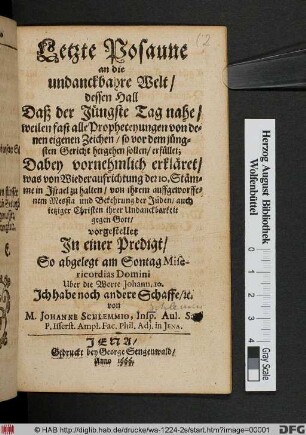 Letzte Posaune
an die
undanckbahre Welt/
dessen Hall
Daß der Jüngste Tag nahe/
weilen fast alle Propheceyungen von de-
nen eigenen Zeichen/ so vor dem jüng-
sten Gericht hergehen sollen/ erfüllet;
Dabey vornehmlich erkläret/
was von Wiederauffrichtung der 10. Stäm-
me in Israel zu halten/ von ihrem auffgeworffe-
nem Messia und Bekehrung der Jüden/ auch
ietziger Christen ihrer Undanckbarkeit
gegen Gott/
vorgestellet
In einer Predigt/
So abgelegt am Sontag Mise-
ricordias Domini
Uber die Worte Johann. 10.
Ich habe noch andere Schaffe/ ꝛc.
von
M. JOHANNE SCHLEMMIO, Insp. Aul. S.
Ampl. Fac. Phil. Adj. in JENA.
JENA/
Gedruckt bey George Sengenwald/
Anno 1666.
Herzog August Bibliothek
Wolfenbüttel
Gay Scale
© HAB http://diglib.hab.de/drucke/wa-1224-2s/start.htm?image=00001